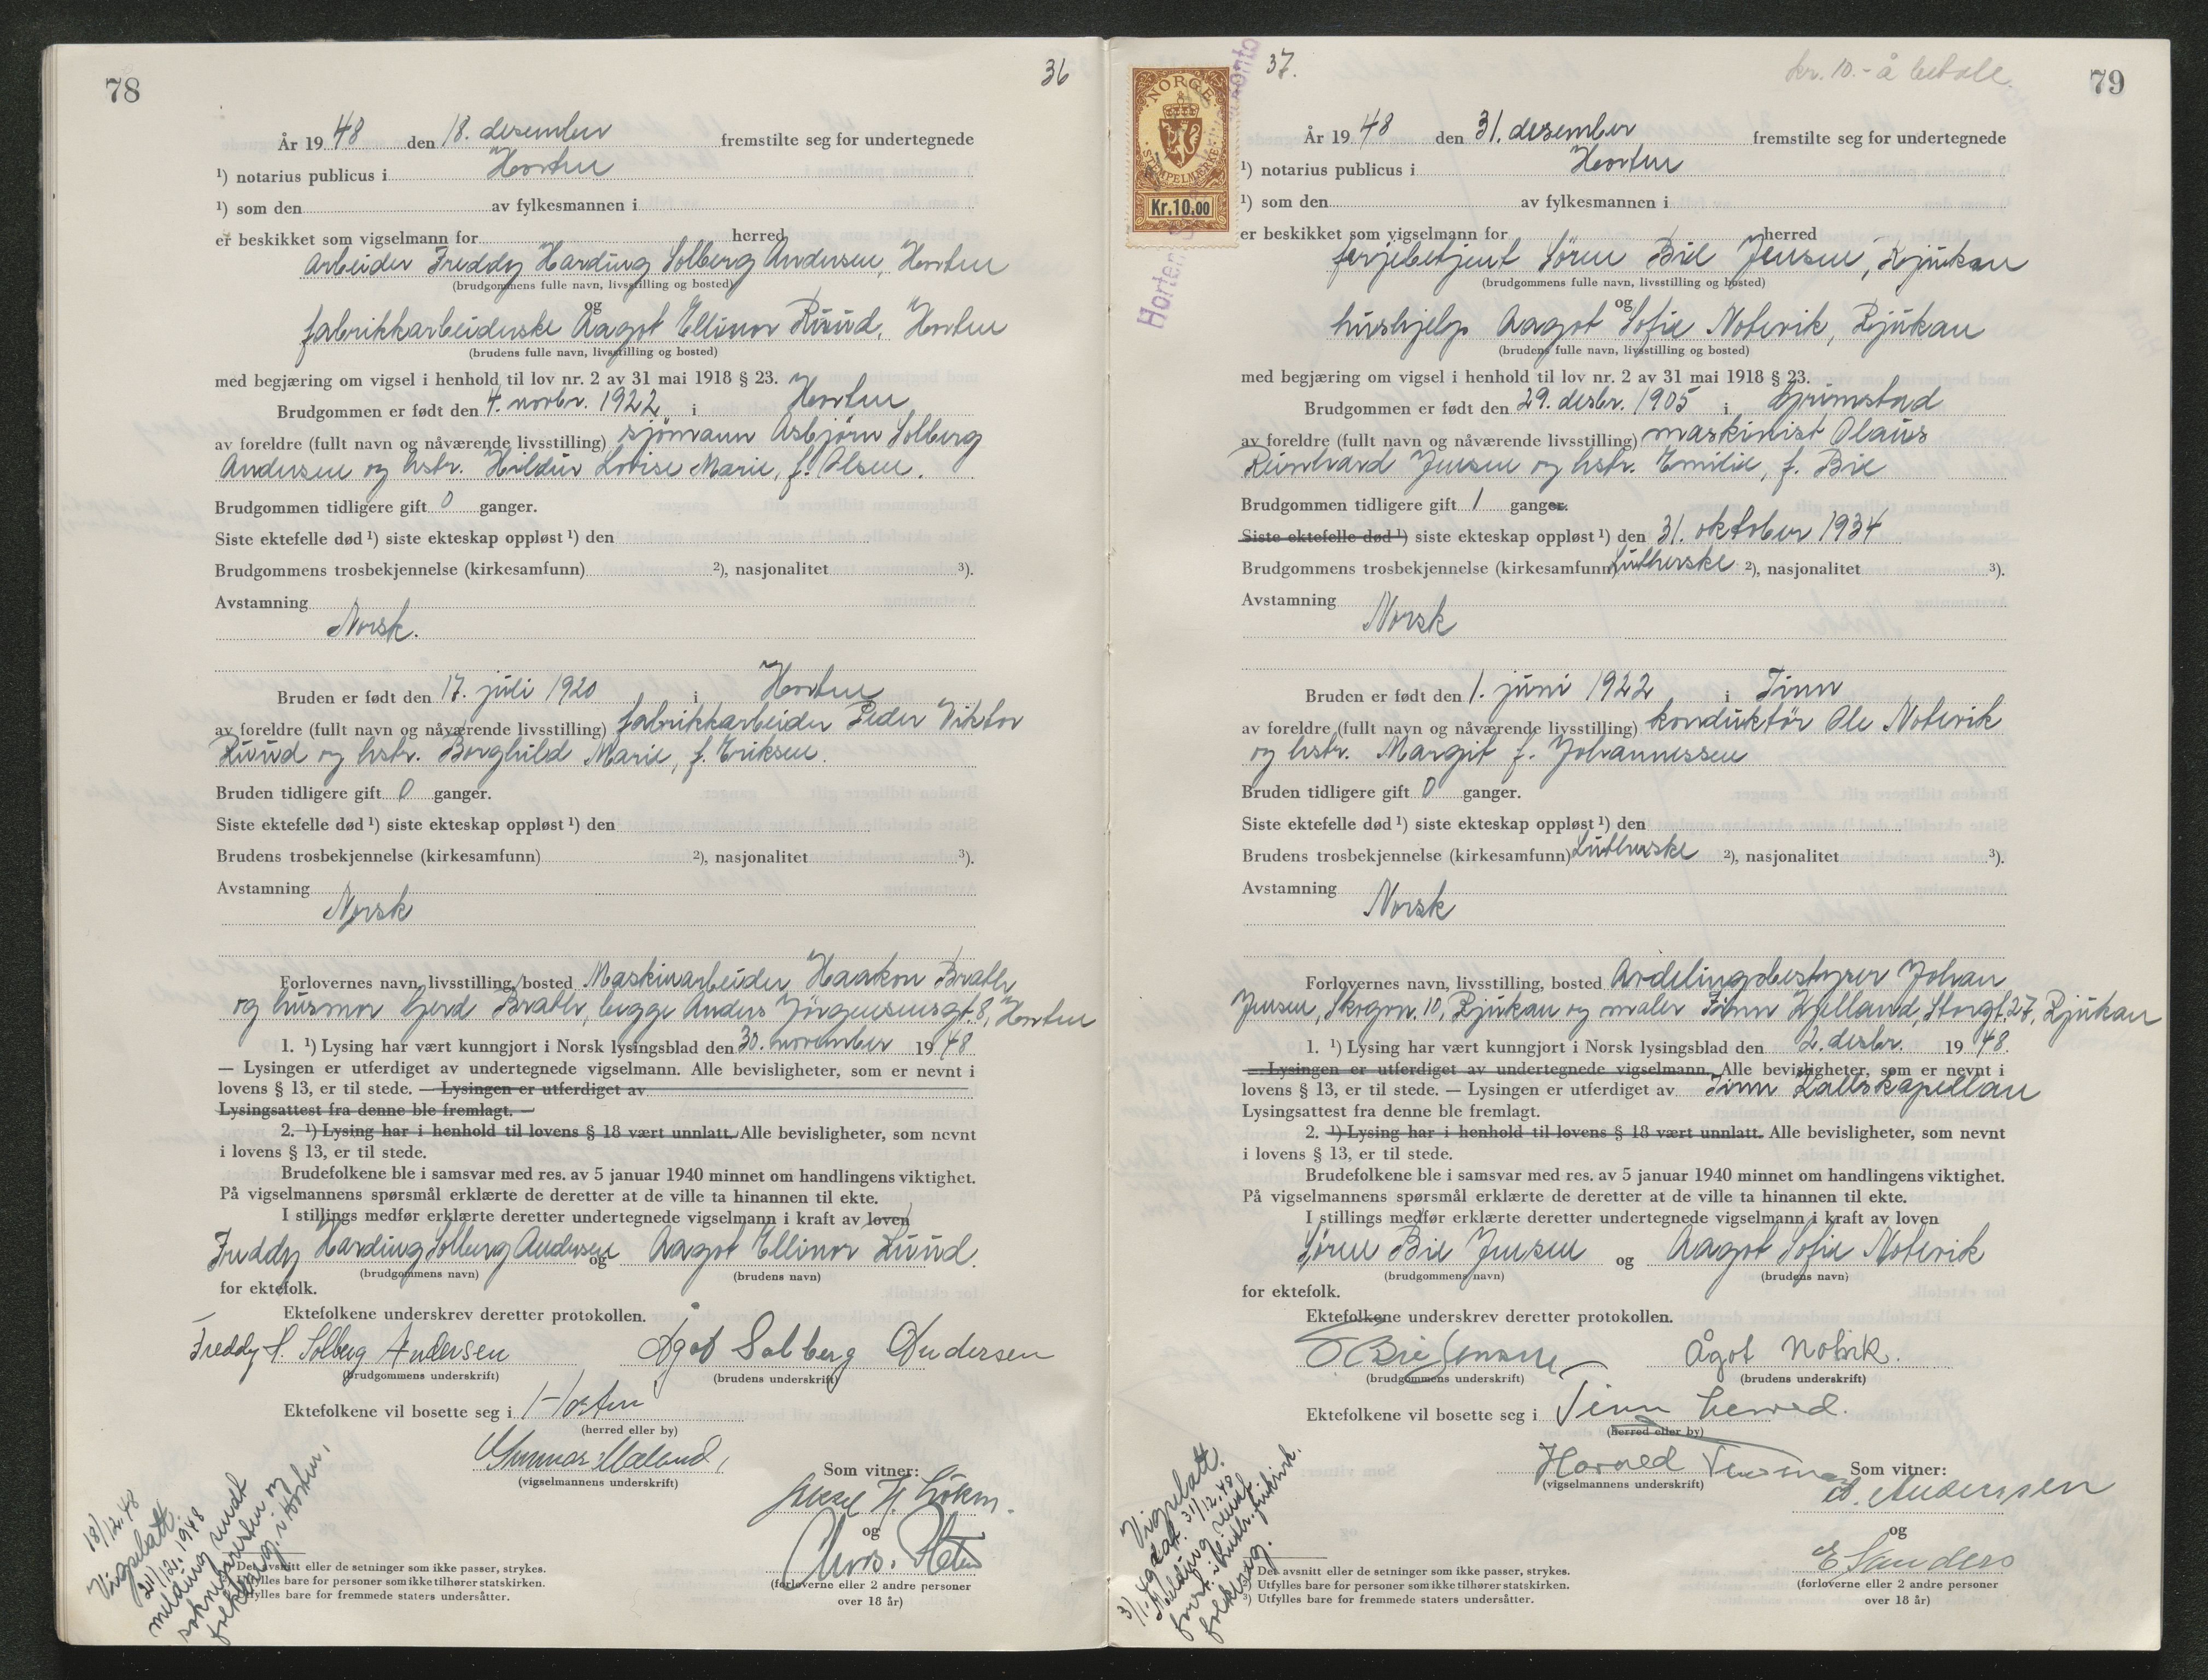 78
36
År 1948 den 18. desember fremstilte seg for undertegnede
¹) notarius publicus i Horten
¹) som den av fylkesmannen i
er beskikket som vigselmann for herred
Arbeider Freddy Harding Solberg Andersen, Horten
(brudgommens fulle navn, livsstilling og bosted)
og
fabrikkarbeiderske Aagot Ellinor Ruud, Horten
(brudens fulle navn, livsstilling og bosted)
med begjæring om vigsel i henhold til lov nr. 2 av 31 mai 1918 § 23.
Brudgommen er født den 4. novbr. 1922 i Horten
av foreldre (fullt navn og nåværende livsstilling) sjömann Asbjörn Solberg
Andersen og hstr. Hildur Lovise Marie, f. Olsen.
Brudgommen tidligere gift 0 ganger.
Siste ektefelle død ¹) siste ekteskap oppløst ¹) den
Brudgommens trosbekjennelse (kirkesamfunn) ²), nasjonalitet ³).
Avstamning
Norsk.
Bruden er født den 17. juli 1920 i Horten
av foreldre (fullt navn og nåværende livsstilling) fabrikkarbeider Peder Viktor
Ruud og hstr. Borghild Marie, f. Eriksen.
Bruden tidligere gift 0 ganger.
Siste ektefelle død ¹) siste ekteskap oppløst ¹) den
Brudens trosbekjennelse (kirkesamfunn) ²), nasjonalitet ³).
Avstamning
Norsk
Forlovernes navn, livsstilling, bosted Maskinarbeider Haakon Bratli
og husmor Gerd Bratli, begge Anders Jörgensensgt. 8, Horten
1. ¹) Lysing har vært kunngjort i Norsk lysingsblad den 30. november 1948
— Lysingen er utferdiget av undertegnede vigselmann. Alle bevisligheter, som er nevnt i
lovens § 13, er til stede. — Lysingen er utferdiget av
Lysingsattest fra denne ble fremlagt. —
2. ¹) Lysing har i henhold til lovens § 18 vært unnlatt. Alle bevisligheter, som nevnt
i lovens § 13, er til stede.
Brudefolkene ble i samsvar med res. av 5 januar 1940 minnet om handlingens viktighet.
På vigselmannens spørsmål erklærte de deretter at de ville ta hinannen til ekte.
I stillings medfør erklærte deretter undertegnede vigselmann i kraft av loven
Freddy Harding Solberg Andersen og Aagot Ellinor Ruud.
(brudgommens navn) (brudens navn)
for ektefolk.
Ektefolkene underskrev deretter protokollen.
Freddy H. Solberg Andersen Ågot Solberg Andersen
(brudgommens underskrift) (brudens underskrift)
Ektefolkene vil bosette seg i Horten
(herred eller by)
Gunnar Mæland,
(vigselmannens underskrift)
Som vitner:
og
(forloverne eller 2 andre personer
over 18 år)
18/12.48
Vigselatt.
20/12.1948
melding sendt
folkereg. i Horten.
¹) Det avsnitt eller de setninger som ikke passer, strykes.
²) Utfylles bare for personer som ikke tilhører statskirken.
³) Utfylles bare for fremmede staters undersåtter.
37.
kr. 10.- å betale.
79
NORGE
STEMPELMERKE
Kr.10.00
Horten
År 1948 den 31. desember fremstilte seg for undertegnede
¹) notarius publicus i Horten
¹) som den av fylkesmannen i
er beskikket som vigselmann for herred
ferjebetjent Sören Bie Jensen, Rjukan
(brudgommens fulle navn, livsstilling og bosted)
og
hushjelp Aagot Sofie Notevik, Rjukan
(brudens fulle navn, livsstilling og bosted)
med begjæring om vigsel i henhold til lov nr. 2 av 31 mai 1918 § 23.
Brudgommen er født den 29. desbr. 1905 i Grimstad
av foreldre (fullt navn og nåværende livsstilling) maskinist Olaus
Reinhard Jensen og hstr. Emilie, f. Bie
Brudgommen tidligere gift 1 ganger.
Siste ektefelle død ¹) siste ekteskap oppløst ¹) den 31. oktober 1934
Brudgommens trosbekjennelse (kirkesamfunn) Lutherske ²), nasjonalitet ³).
Avstamning
Norsk
Bruden er født den 1. juni 1922 i Tinn
av foreldre (fullt navn og nåværende livsstilling) konduktör Ole Notevik
og hstr. Margit f. Johannessen
Bruden tidligere gift 0 ganger.
Siste ektefelle død ¹) siste ekteskap oppløst ¹) den
Brudens trosbekjennelse (kirkesamfunn) Lutherske ²), nasjonalitet ³).
Avstamning
Norsk
Forlovernes navn, livsstilling, bosted Avdelingsbestyrer Johan
Jensen, Skrgvn. 10, Rjukan og maler Finn Kjelland, Storgt. 27, Rjukan
1. ¹) Lysing har vært kunngjort i Norsk lysingsblad den 2. desbr. 1948.
— Lysingen er utferdiget av undertegnede vigselmann. Alle bevisligheter, som er nevnt i
lovens § 13, er til stede. — Lysingen er utferdiget av Tinn Kallskapellan
Lysingsattest fra denne ble fremlagt.
2. ¹) Lysing har i henhold til lovens § 18 vært unnlatt. Alle bevisligheter, som nevnt
i lovens § 13, er til stede.
Brudefolkene ble i samsvar med res. av 5 januar 1940 minnet om handlingens viktighet.
På vigselmannens spørsmål erklærte de deretter at de ville ta hinannen til ekte.
I stillings medfør erklærte deretter undertegnede vigselmann i kraft av loven
Sören Bie Jensen og Aagot Sofie Notevik
(brudgommens navn) (brudens navn)
for ektefolk.
Ektefolkene underskrev deretter protokollen.
S Bie Jensen Ågot Notvik.
(brudgommens underskrift) (brudens underskrift)
Ektefolkene vil bosette seg i Tinn herred.
(herred eller by)
Harald
(vigselmannens underskrift)
Som vitner:
Andersen
og
E Sanders
(forloverne eller 2 andre personer
over 18 år)
Vigselatt.
31/12.48
Melding sendt
folkereg.
¹) Det avsnitt eller de setninger som ikke passer, strykes.
²) Utfylles bare for personer som ikke tilhører statskirken.
³) Utfylles bare for fremmede staters undersåtter.